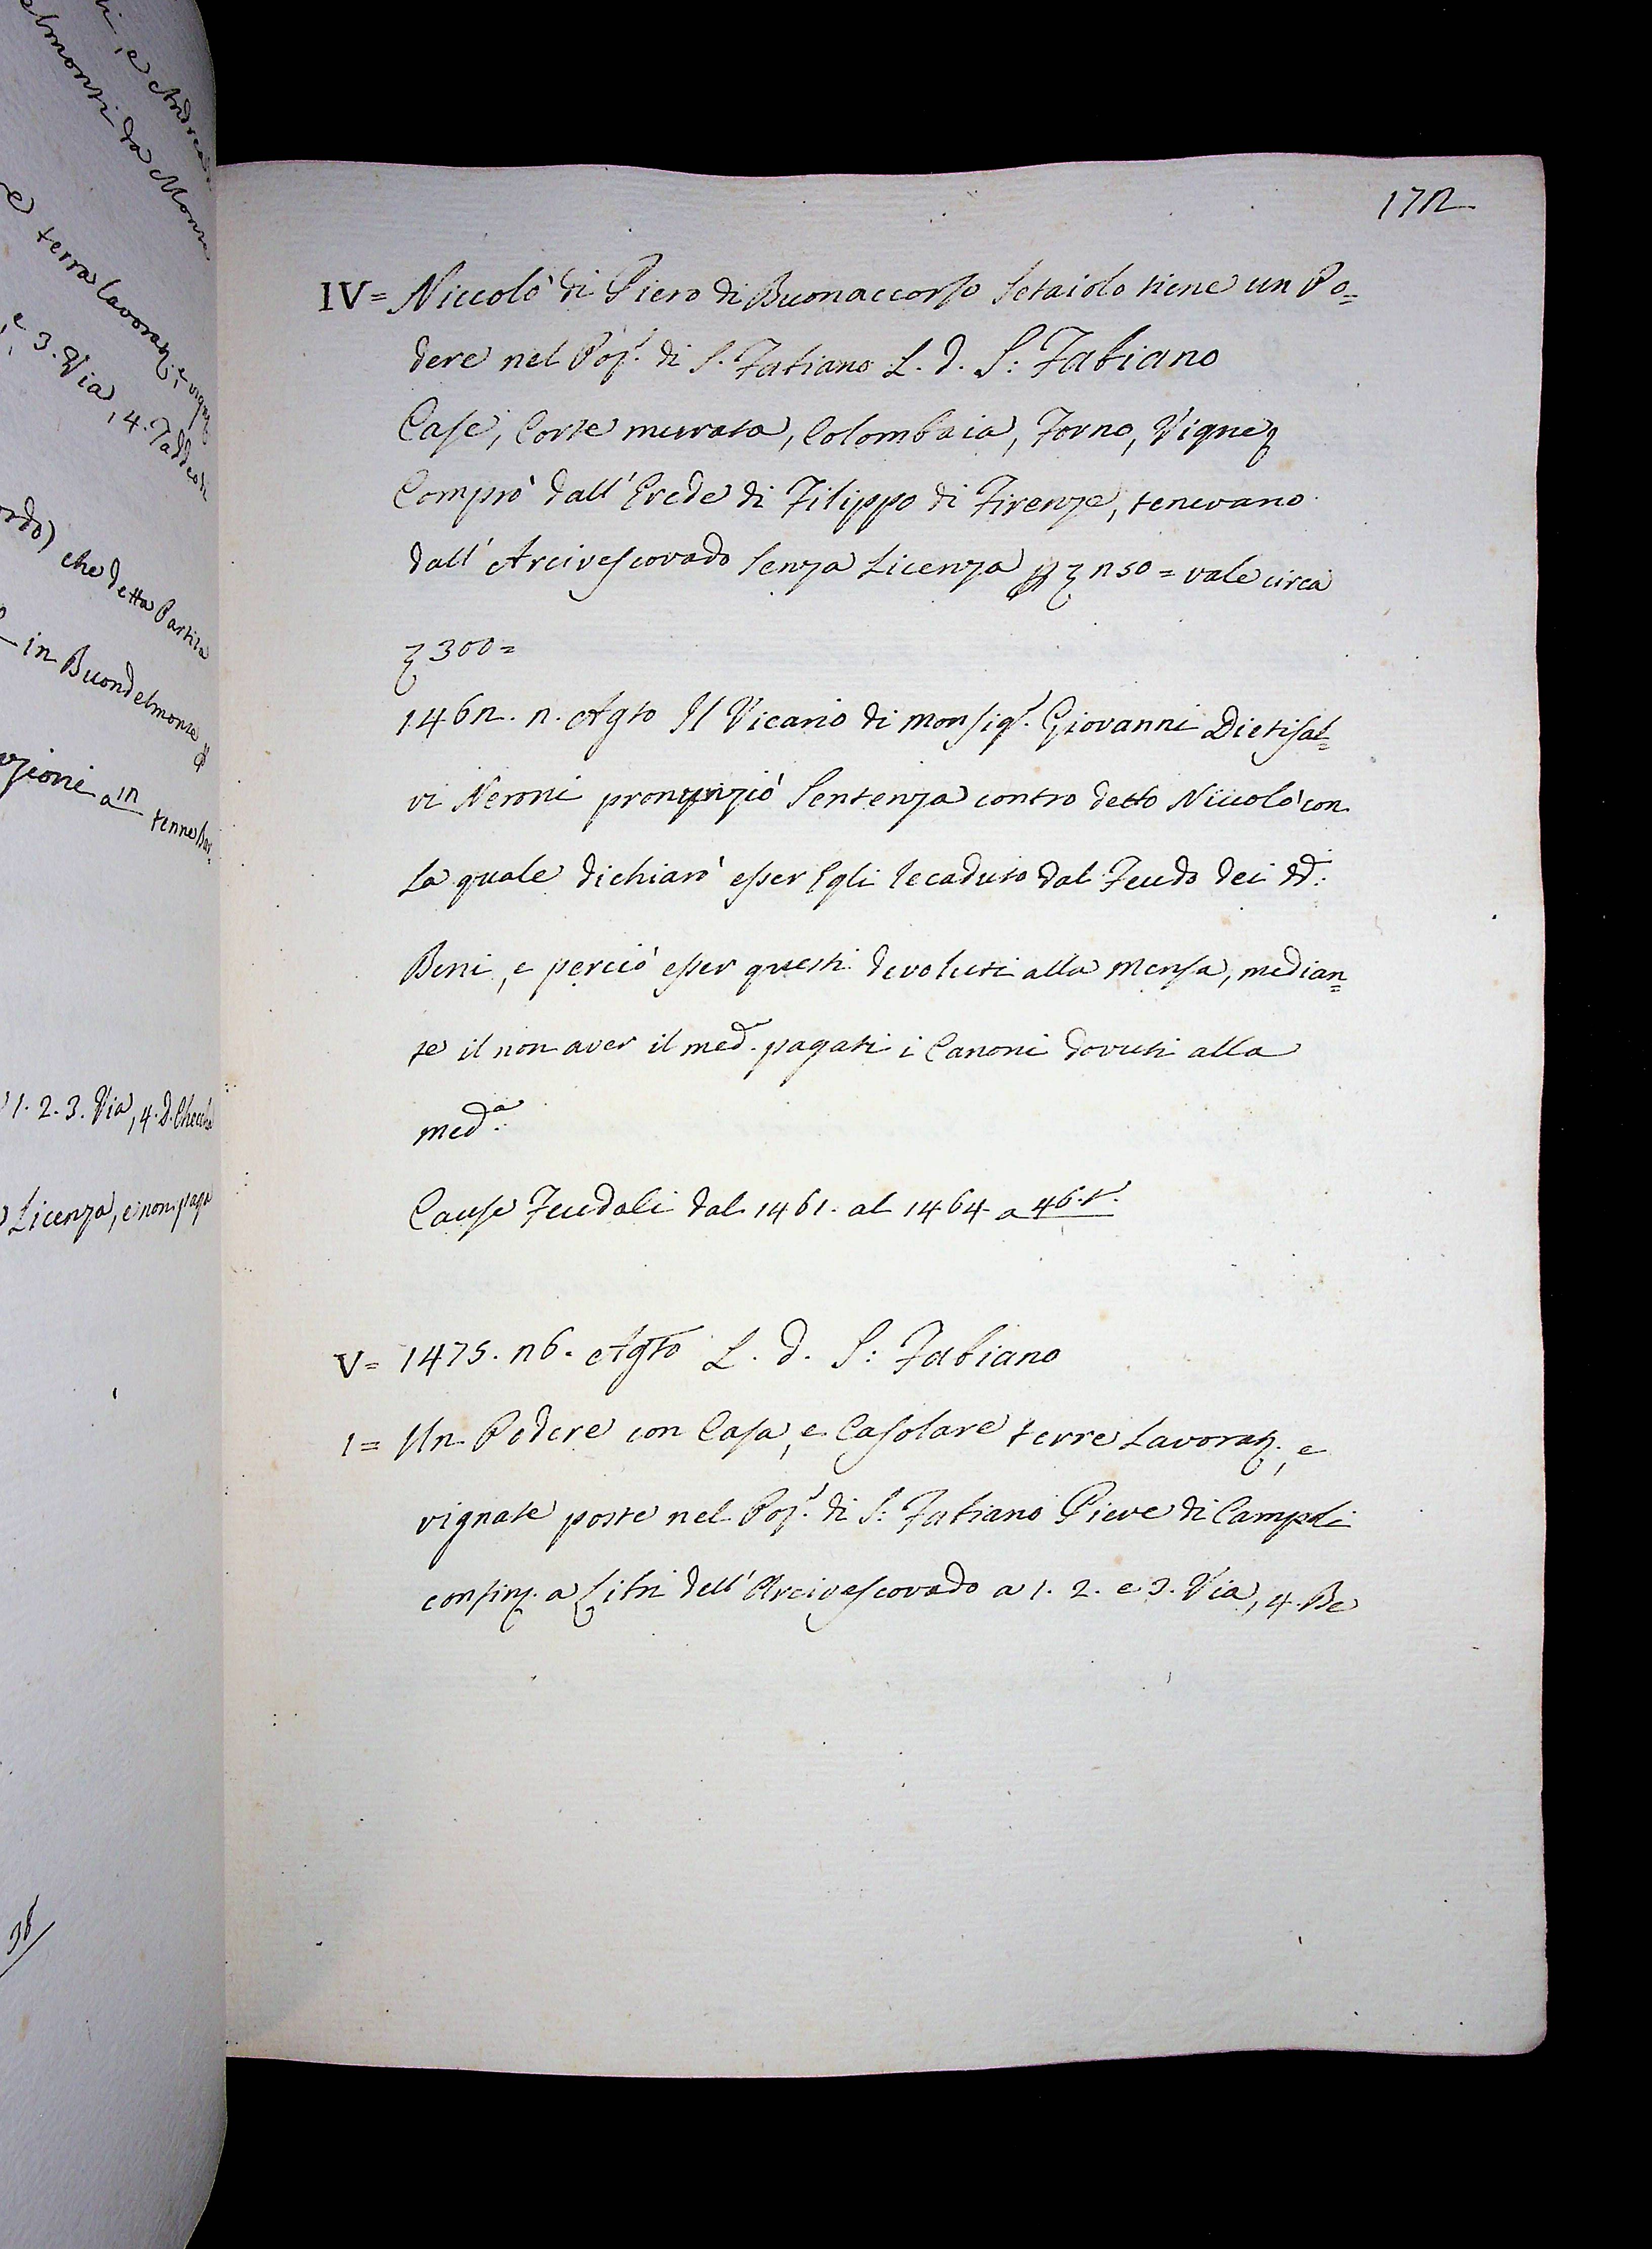 ti, e Andrea
elmonti da Monte
e terra lavorat., e vignat.
e 3. Via, 4. Taddeo di
che detta Partita
in Buondelmonte
a in tenne
1. 2. 3. Via, 4. D. Checcha
Licenza, e non paga
172
IV= Niccolò di Piero di Buonaccorso Setaiolo tiene un Po=
dere nel Pop.º di S. Fabiano L. d. S: Fabiano
Case, Corte murata, Colombaia, Forno, Vigne
Comprò dall' Erede di Filippo di Firenze, tenevano
dall' Arcivescovado senza Licenza p 250= vale circa
300=
1462. 2. Agto Il Vicario di Monsig.r Giovanni Dietisal=
vi Neroni pronunziò Sentenza contro detto Niccolò con
La quale dichiarò esser Egli decaduto dal Feudo dei dd:
Beni, e perciò esser questi devoluti alla Mensa, median=
te il non aver il med.º pagati i Canoni dovuti alla
med.a
Cause Feudali dal 1461. al 1464 a 46.t.
V= 1475. 26. Agto L. d. S: Fabiano
1= Un Podere con Casa, e Casolare terre Lavorat., e
vignate poste nel Pop.º di S: Fabiano Pieve di Campoli
confin. a Libri dell' Arcivescovado a 1. 2. e 3. Via, 4. Be